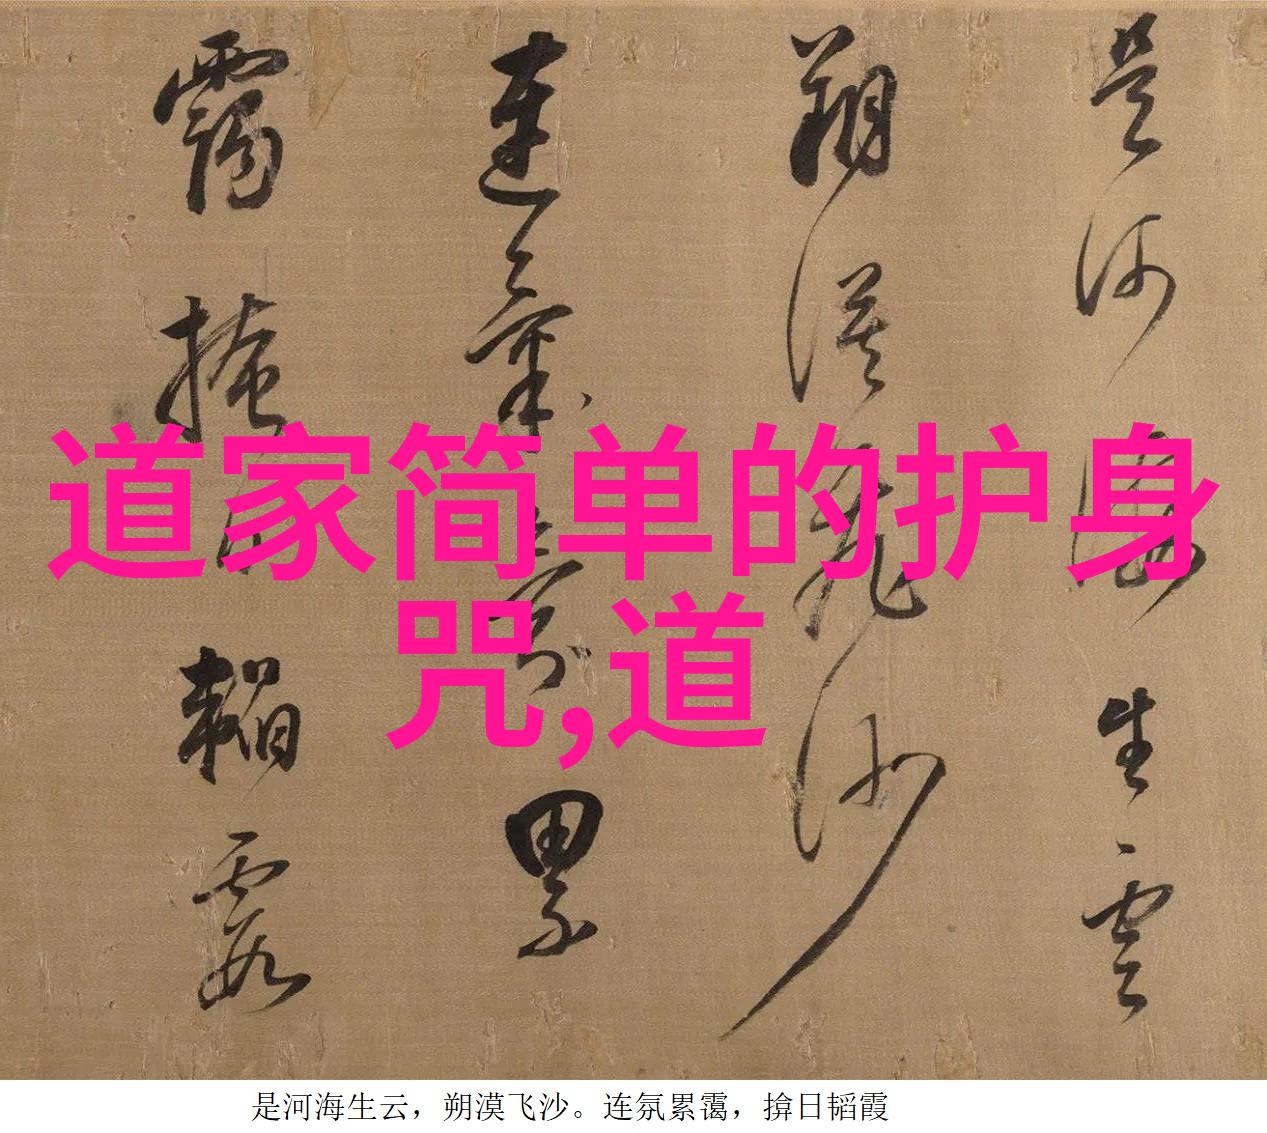 是河海生雲
朔漠飛沙
連氣氛累
靄掩日韜霞
道家简单的护身
咒,道
是河海生云，朔漠飞沙。连氛累霭，揜日韬霞